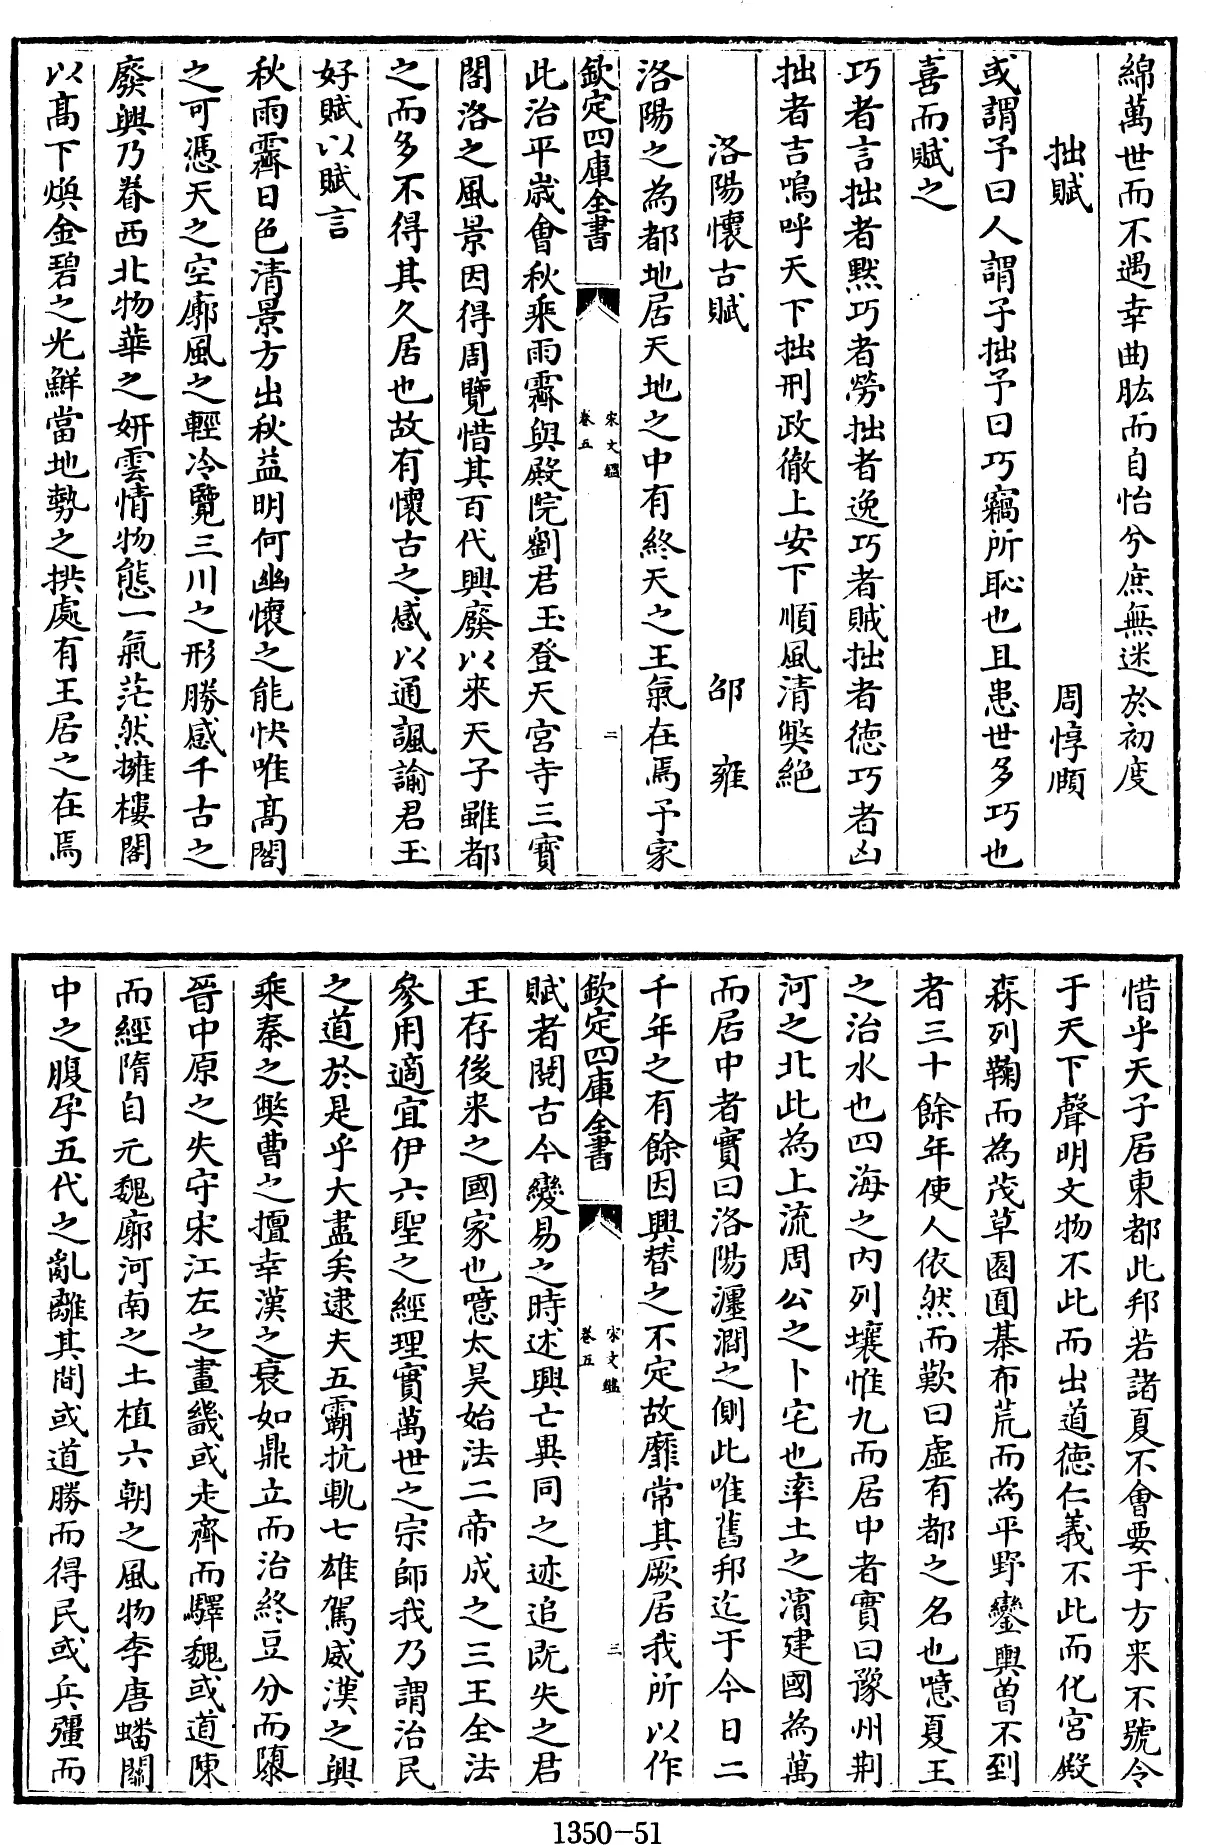 綿萬世而不遇幸曲肱而自怡兮庶無迷於初度
拙賦　周惇頤
或謂予曰人謂子拙予曰巧竊所恥也且患世多巧也
喜而賦之
巧者言拙者黙巧者勞拙者逸巧者賊拙者徳巧者凶
拙者吉嗚呼天下拙刑政徹上安下順風清弊絶
洛陽懷古賦　邵雍
洛陽之為都地居天地之中有終天之王氣在焉予家
欽定四庫全書　宋文鑑 卷五　二
此治平嵗會秋乗雨霽與殿院劉君玉登天宮寺三寳
閣洛之風景因得周覽惜其百代興廢以來天子雖都
之而多不得其久居也故有懷古之感以通諷諭君玉
好賦以賦言
秋雨霽日色清景方出秋益明何幽懷之能快唯髙閣
之可憑天之空廓風之輕冷覽三川之形勝感千古之
廢興乃眷西北物華之妍雲情物態一氣茫然擁樓閣
以髙下煥金碧之光鮮當地勢之拱處有王居之在焉
惜乎天子居東都此邦若諸夏不會要于方来不號令
于天下聲明文物不此而出道徳仁義不此而化宮殿
森列鞠而為茂草園囿棊布荒而為平野鑾輿曽不到
者三十餘年使人依然而歎曰虛有都之名也噫夏王
之治水也四海之内列壤惟九而居中者實曰豫州荆
河之北此為上流周公之卜宅也率土之濱建國為萬
而居中者實曰洛陽瀍澗之側此唯舊邦迄于今日二
千年之有餘因興替之不定故靡常其厥居我所以作
欽定四庫全書　宋文鑑 卷五　三
賦者閲古今變易之時述興亡異同之迹追既失之君
王存後来之國家也噫太昊始法二帝成之三王全法
參用適宜伊六聖之經理實萬世之宗師我乃謂治民
之道於是乎大盡矣逮夫五霸抗軌七雄駕威漢之興
乗秦之弊曹之擅幸漢之衰如鼎立而治終豆分而隳
晉中原之失守宋江左之畫畿或走齊而驛魏或道陳
而經隋自元魏廓河南之土植六朝之風物李唐蟠關
中之腹孕五代之亂離其間或道勝而得民或兵彊而
1350-51